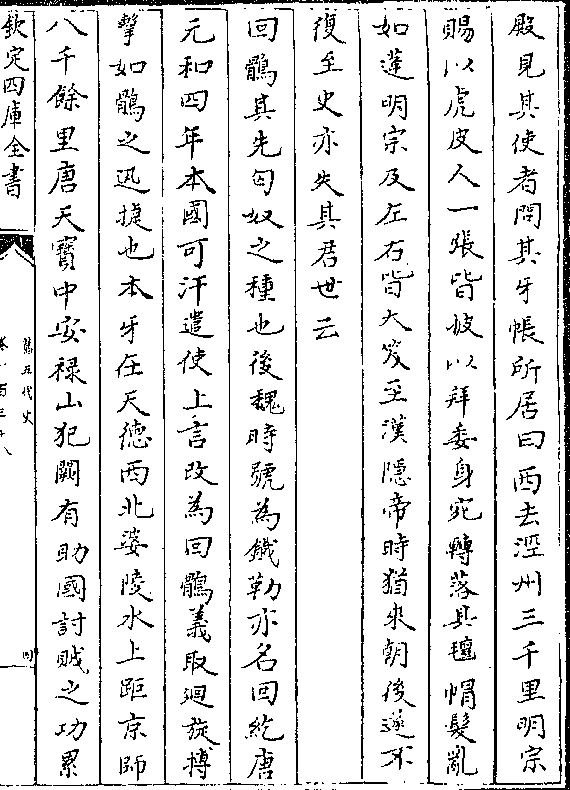 殿見其使者問其牙帳所居曰西去涇州三千里明宗
賜以虎皮人一張皆披以拜委身宛轉落其氊帽髮亂
如蓬明宗及左右皆大笑至漢隠帝時猶来朝後遂不
復至史亦失其君世云
回鶻其先匈奴之種也後魏時號為鐵勒亦名回紇唐
元和四年本國可汗遣使上言改為回鶻義取迴旋搏
擊如鶻之迅捷也本牙在天德西北娑陵水上距京師
八千餘里唐天寶中安祿山犯闕有助國討賊之功累
欽定四庫全書
舊五代史
卷一百三十八
四